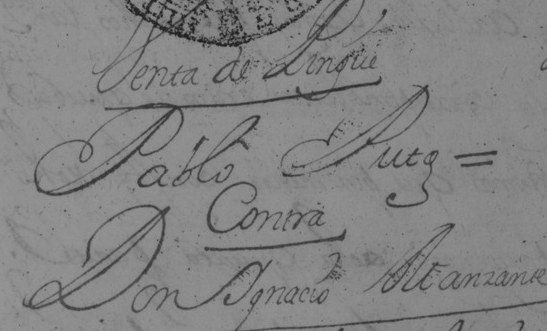 Venta de Pingüe
Pablo Putg =
Contra
Don Ygnacio Altanzante